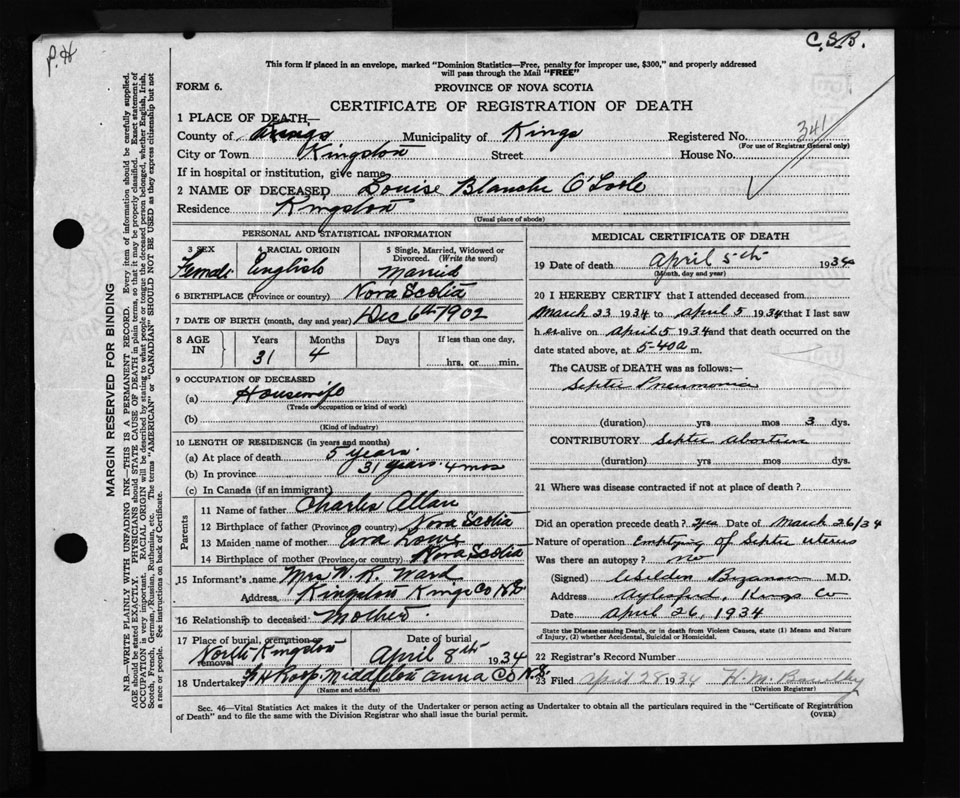 C.S.B.
P.H
This form if placed in an envelope, marked "Dominion Statistics—Free, penalty for improper use, $300," and properly addressed
will pass through the Mail "FREE"
FORM 6.
PROVINCE OF NOVA SCOTIA
CERTIFICATE OF REGISTRATION OF DEATH
1 PLACE OF DEATH—
County of Kings Municipality of Kings Registered No. 341
(For use of Registrar General only)
City or Town Kingston Street House No.
If in hospital or institution, give name
2 NAME OF DECEASED Louise Blanche O'Toole
Residence Kingston
(Usual place of abode)
PERSONAL AND STATISTICAL INFORMATION
3 SEX 4 RACIAL ORIGIN 5 Single, Married, Widowed or
Divorced. (Write the word)
Female English Married
6 BIRTHPLACE (Province or country) Nova Scotia
7 DATE OF BIRTH (month, day and year) Dec 6th 1902
8 AGE IN Years Months Days If less than one day,
31 4 hrs. or min.
9 OCCUPATION OF DECEASED
(a) Housewife
(Trade or occupation or kind of work)
(b)
(Kind of industry)
10 LENGTH OF RESIDENCE (in years and months)
(a) At place of death 5 years
(b) In province 31 years 4 mos
(c) In Canada (if an immigrant)
Parents
11 Name of father Charles Allan
12 Birthplace of father (Province or country) Nova Scotia
13 Maiden name of mother Lowe
14 Birthplace of mother (Province, or country) Nova Scotia
15 Informant's name Mrs W. R. Ward
Address Kingston Kings Co N.S.
16 Relationship to deceased Mother
17 Place of burial, cremation or removal North Kingston Date of burial April 8th 1934
18 Undertaker Middleton Anna Co N.S.
(Name and address)
MEDICAL CERTIFICATE OF DEATH
19 Date of death April 5th 1934
(Month, day and year)
20 I HEREBY CERTIFY that I attended deceased from
March 23 1934 to April 5 1934 that I last saw
h er alive on April 5 1934 and that death occurred on the
date stated above, at 5-40a m.
The CAUSE of DEATH was as follows:—
Septic Pneumonia
(duration) yrs mos 3 dys.
CONTRIBUTORY Septic Abortion
(duration) yrs mos dys.
21 Where was disease contracted if not at place of death?
Did an operation precede death? yes Date of March 26/34
Nature of operation Emptying of Septic uterus
Was there an autopsy? No
(Signed) M.D.
Address Aylesford, Kings Co
Date April 26, 1934
State the Disease causing Death, or in death from Violent Causes, state (1) Means and
Nature of Injury, (2) whether Accidental, Suicidal or Homicidal.
22 Registrar's Record Number
23 Filed April 28 1934 H. M.
(Division Registrar)
Sec. 46—Vital Statistics Act makes it the duty of the Undertaker or person acting as Undertaker to obtain all the particulars required in the "Certificate of Registration
of Death" and to file the same with the Division Registrar who shall issue the burial permit. (OVER)
MARGIN RESERVED FOR BINDING
N.B.—WRITE PLAINLY WITH UNFADING INK—THIS IS A PERMANENT RECORD. Every item of information should be carefully supplied.
AGE should be stated EXACTLY. PHYSICIANS should STATE CAUSE OF DEATH in plain terms, so that it may be properly classified. Exact statement of
OCCUPATION is very important. RACIAL ORIGIN will be described by stating to what people or tongue the deceased person belonged, whether English, Irish,
Scotch, French, German, Russian, Ruthenian, etc. The terms "AMERICAN" or "CANADIAN" SHOULD NOT BE USED as they express citizenship but not
a race or people. See instructions on back of Certificate.